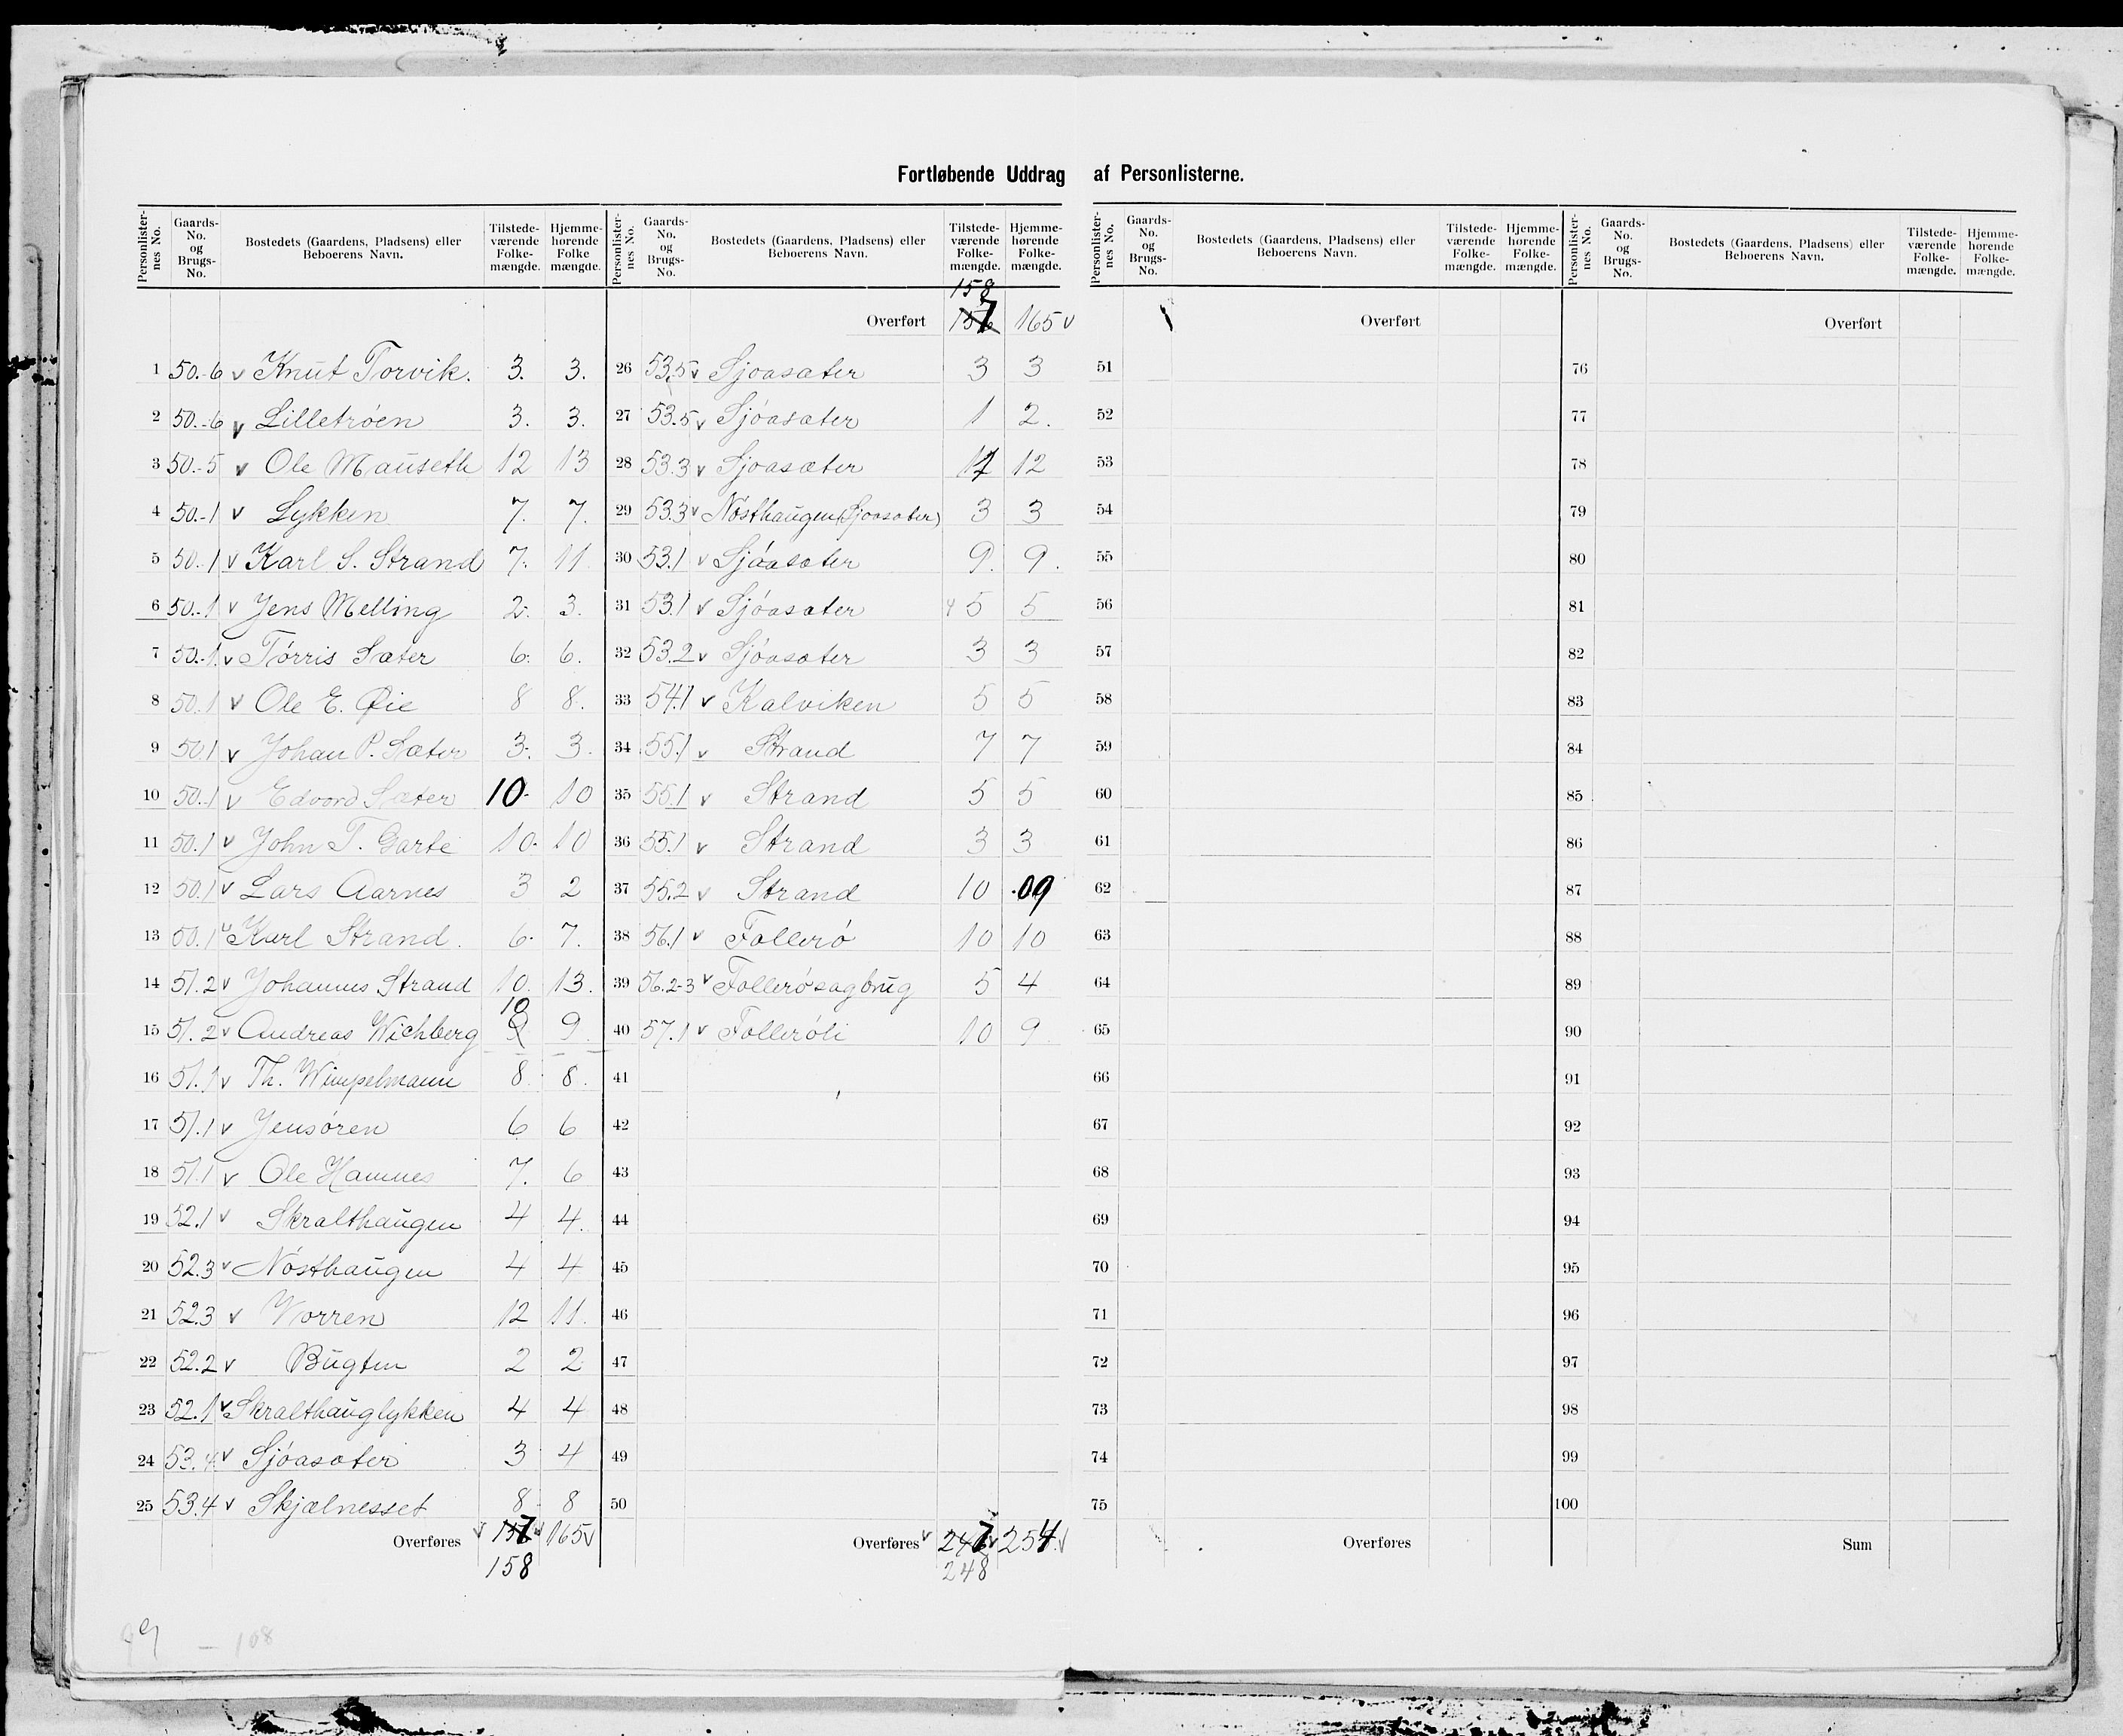 Fortløbende Uddrag af Personlisterne.
Personlister-nes No. Gaards-No. og Brugs-No. Bostedets (Gaardens, Pladsens) eller Beboerens Navn. Tilstede-værende Folke-mængde. Hjemme-hørende Folke mængde.
1 50.-6 v Knut Torvik. 3. 3.
2 50.-6 v Lilletrøen 3. 3.
3 50.-5 v Ole Mauseth 12 13
4 50.-1 v Lykken 7. 7.
5 50.-1 v Karl S. Strand 7. 11.
6 50.-1 v Jens Melling 2. 3.
7 50.-1. v Tørris Sæter 6. 6.
8 50.1 v Ole E. Øie 8 8.
9 50.1 v Johan P. Sæter 3. 3.
10 50.1 v Edvard Sæter 10. 10
11 50.1 v John T. Garte 10. 10
12 50.1 v Lars Aarnes 3 2
13 50.1 v Karl Strand. 6. 7.
14 51.2 v Johannes Strand 10. 13.
15 51.2 v Andreas Wichberg 10 9
16 51.1 v Th. Wimpelmann 8. 8.
17 51.1 v Jensøren 6 6
18 51.1 v Ole Hamnes 7. 6
19 52.1 v Skralthaugen 4 4.
20 52.3 v Nøsthaugen 4 4
21 52.3 v Vorren 12 11.
22 52.2 v Bugten 2 2
23 52.1 v Skralthauglykken 4 4
24 53.4 v Sjøasæter 3 4
25 53.4 v Skjælnesset 8. 8
Overføres v 157 v 165 v
158
Personlister-nes No. Gaards-No. og Brugs-No. Bostedets (Gaardens, Pladsens) eller Beboerens Navn. Tilstede-værende Folke-mængde. Hjemme-hørende Folke-mængde.
158
Overført 157 165 v
26 53.5 v Sjøasæter 3 3
27 53.5 v Sjøasæter 1 2.
28 53.3 v Sjøasæter 12
29 53.3 v Nøsthaugen (Sjøasæter) 3 3
30 53.1 v Sjøasæter 9. 9.
31 53.1 v Sjøasæter 5 5
32 53.2 v Sjøasæter 3 3
33 54.1 v Kalviken 5 5
34 55.1 v Strand 7 7
35 55.1 v Strand 5 5
36 55.1 v Strand 3 3
37 55.2 v Strand 10 09
38 56.1 v Follerø 10 10
39 56.2-3 v Follerøsagbrug 5 4
40 57.1 v Follerøli 10 9
41
42
43
44
45
46
47
48
49
50
Overføres v 247 v 254 v
248
Personlister-nes No. Gaards-No. og Brugs-No. Bostedets (Gaardens, Pladsens) eller Beboerens Navn. Tilstede-værende Folke-mængde. Hjemme-hørende Folke-mængde.
Overført
51
52
53
54
55
56
57
58
59
60
61
62
63
64
65
66
67
68
69
70
71
72
73
74
75
Overføres
Personlister-nes No. Gaards-No. og Brugs-No. Bostedets (Gaardens, Pladsens) eller Beboerens Navn. Tilstede-værende Folke-mængde. Hjemme-hørende Folke-mængde.
Overført
76
77
78
79
80
81
82
83
84
85
86
87
88
89
90
91
92
93
94
95
96
97
98
99
100
Sum
99 — 108